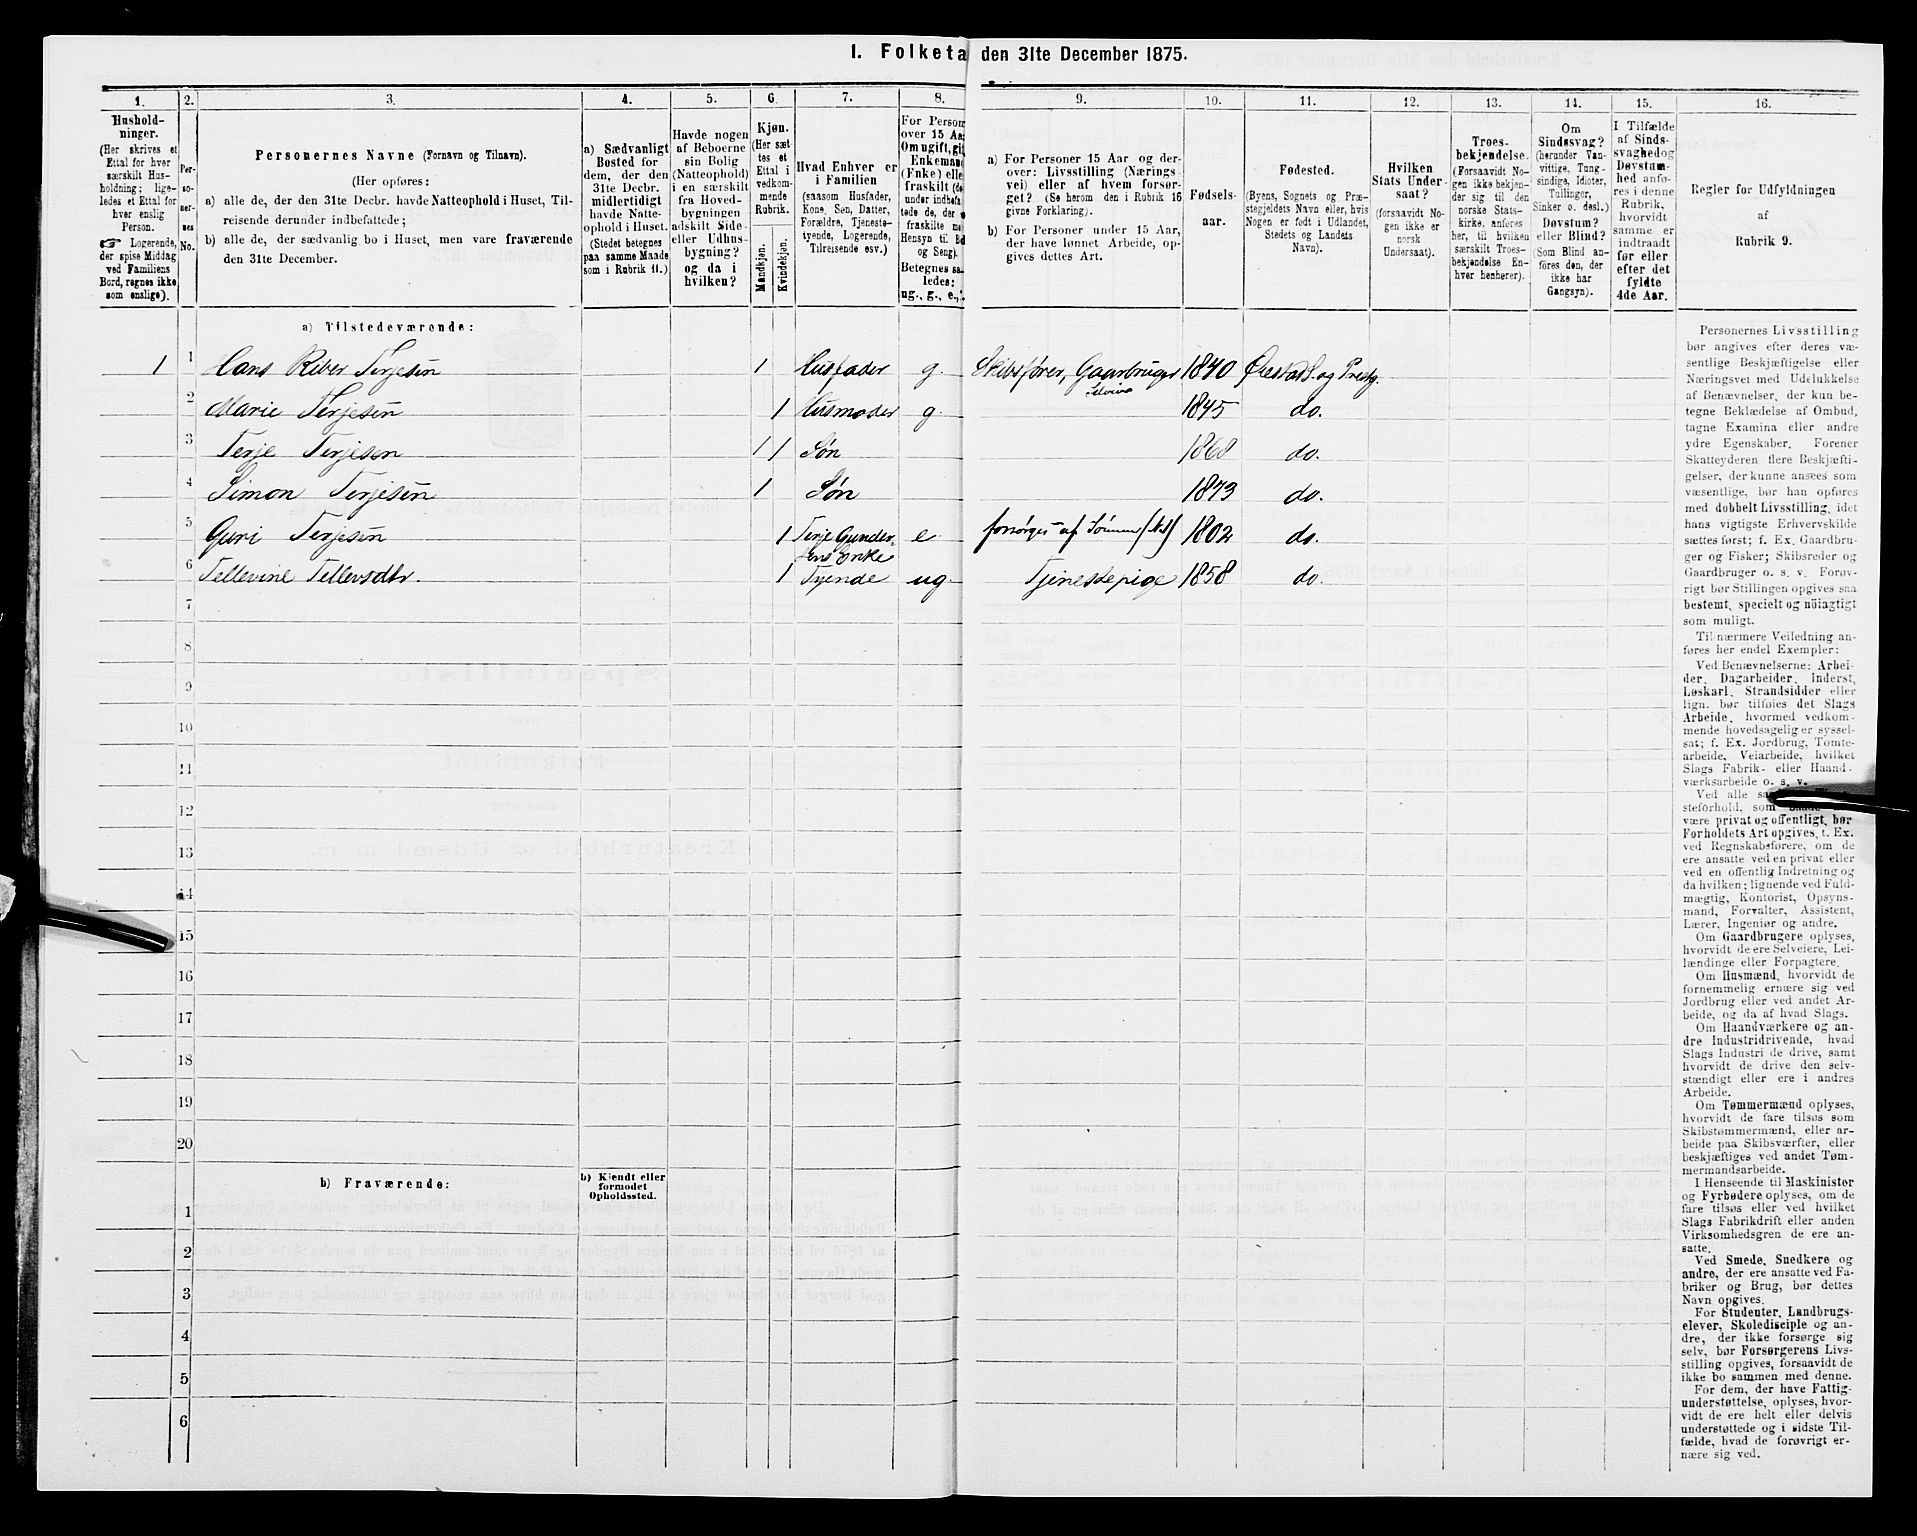 I. Folketa den 31te December 1875.
1. 2. 3. 4. 5. 6. 7. 8. 9. 10. 11. 12. 13. 14. 15. 16.
Hushold-
ninger.
(Her skrives et
Ettal for hver
særskilt Hus-
holdning; lige-
ledes et Ettal for
hver enslig
Person.
☞ Logerende,
der spise Middag
ved Familiens
Bord, regnes ikke
som enslige).
Per-
so-
ner-
nes
No.
Personernes Navne (Fornavn og Tilnavn).
(Her opføres:
a) alle de, der den 31te Decbr. havde Natteophold i Huset, Til-
reisende derunder indbefattede;
b) alle de, der sædvanlig bo i Huset, men vare fraværende
den 31te December.
a) Sædvanligt
Bosted for
dem, der den
31te Decbr.
midlertidigt
havde Natte-
ophold i Huset.
(Stedet betegnes
paa samme Maade
som i Rubrik 11.)
Havde nogen
af Beboerne
sin Bolig
(Natteophold)
i en særskilt
fra Hoved-
bygningen
adskilt Side-
eller Udhus-
bygning?
og da i
hvilken?
Kjøn.
(Her sæt
tes et
Ettal i
vedkom-
mende
Rubrik.
Mandkjøn.
Kvindekjøn.
Hvad Enhver er
i Familien
(saasom Husfader,
Kone, Søn, Datter,
Forældre, Tjeneste-
tyende, Logerende,
Tilreisende osv.)
For Person
over 15 Aa
Om ugift, gif
Enkemand
(Enke) elle
fraskilt (de
under indbefat
tede de, der e
fraskilte me
Hensyn til Bo
og Seng).
Betegnes saa
ledes:
ug., g., e.,
a) For Personer 15 Aar og der-
over: Livsstilling (Nærings
vei) eller af hvem forsør-
get? (Se herom den i Rubrik 16
givne Forklaring).
b) For Personer under 15 Aar,
der have lønnet Arbeide, op-
gives dettes Art.
Fødsels-
aar.
Fødested.
(Byens, Sognets og Præ-
stegjeldets Navn eller, hvis
Nogen er født i Udlandet,
Stedets og Landets
Navn).
Hvilken
Stats Under-
saat?
(forsaavidt No-
gen ikke er
norsk
Undersaat).
Troes-
bekjendelse.
(Forsaavidt No-
gen ikke bekjen-
der sig til den
norske Stats-
kirke, anføres
her, til hvilken
særskilt Troes-
bekjendelse En-
hver henhører).
Om
Sindssvag?
(herunder Van-
vittige, Tung-
sindige, Idioter,
Tullinger,
Sinker o. desl.)
Døvstum?
eller Blind?
(Som Blind an-
føres den, der
ikke har
Gangsyn).
I Tilfælde
af Sinds-
svaghedog
Døvstum-
hed anfø-
res i denne
Rubrik,
hvorvidt
samme er
indtraadt
før eller
efter det
fyldte
4de Aar.
Regler for Udfyldningen
af
Rubrik 9.
a) Tilstedeværende:
1 1 Hans Riber Terjesen 1 Husfader g. Skibsfører, Gaardbruger Selveier 1840 Øiestad S. og Prestg.
2 Marie Terjesen 1 Husmoder g. 1845 do.
3 Terje Terjesen 1 1 Søn 1868 do.
4 Simon Terjesen 1 Søn 1873 do.
5 Guri Terjesen 1 Terje Gunder- e. forsørges af Sønnen (N 1) 1802 do.
sens Enke
6 Tellevine Tellevsdtr. 1 Tyende ug. Tjenestepige 1858 do.
7
8
9
10
11
12
13
14
15
16
17
18
19
20
b) Fraværende:
b) Kjendt eller
formodet
Opholdssted.
1
2
3
4
5
6
Personernes Livsstilling
bør angives efter deres væ-
sentlige Beskjæftigelse eller
Næringsvei med Udelukkelse
af Benævnelser, der kun be-
tegne Beklædelse af Ombud,
tagne Examina eller andre
ydre Egenskaber. Forener
Skatteyderen flere Beskjæfti-
gelser, der kunne ansees som
væsentlige, bør han opføres
med dobbelt Livsstilling, idet
hans vigtigste Erhvervskilde
sættes først; f. Ex. Gaardbru-
ger og Fisker; Skibsreder og
Gaardbruger o. s. v. Forøv-
rigt bør Stillingen opgives saa
bestemt, specielt og nöiagtigt
som muligt.
Til nærmere Veiledning an-
føres her endel Exempler:
Ved Benævnelserne: Arbei-
der, Dagarbeider, Inderst,
Løskarl, Strandsidder eller
lign. bør tilføies det Slags
Arbeide, hvormed vedkom-
mende hovedsagelig er syssel-
sat; f. Ex. Jordbrug, Tomte-
arbeide, Veiarbeide, hvilket
Slags Fabrik- eller Haand-
værksarbeide o. s. v.
Ved alle
steforhold, som
være privat og offentligt, bør
Forholdets Art opgives, t. Ex.
ved Regnskabsførere, om de
ere ansatte ved en privat eller
ved en offentlig Indretning og
da hvilken; lignende ved Fuld-
mægtig, Kontorist, Opsyns-
mand, Forvalter, Assistent,
Lærer, Ingeniør og andre.
Om Gaardbrugere oplyses,
hvorvidt de ere Selveiere, Lei-
lændinge eller Forpagtere.
Om Husmænd, hvorvidt de
fornemmelig ernære sig ved
Jordbrug eller ved andet Ar-
beide, og da af hvad Slags.
Om Haandværkere og an-
dre Industridrivende, hvad
Slags Industri de drive, samt
hvorvidt de drive den selv-
stændigt eller ere i andres
Arbeide.
Om Tømmermænd oplyses,
hvorvidt de fare tilsøs som
Skibstømmermænd, eller ar-
beide paa Skibsværfter, eller
beskjæftiges ved andet Tøm-
mermandsarbeide.
I Henseende til Maskinister
og Fyrbødere oplyses, om de
fare tilsøs eller ved hvilket
Slags Fabrikdrift eller anden
Virksomhedsgren de ere an-
satte.
Ved Smede, Snedkere og
andre, der ere ansatte ved Fa-
briker og Brug, bør dettes
Navn opgives.
For Studenter, Landbrugs-
elever, Skoledisciple og an-
dre, der ikke forsørge sig
selv, bør Forsørgerens Livs-
stilling opgives, forsaavidt de
ikke bo sammen med denne.
For dem, der have Fattig-
understøttelse, oplyses, hvor-
vidt de ere helt eller delvis
understøttede og i sidste Til-
fælde, hvad de forøvrigt er-
nære sig ved.